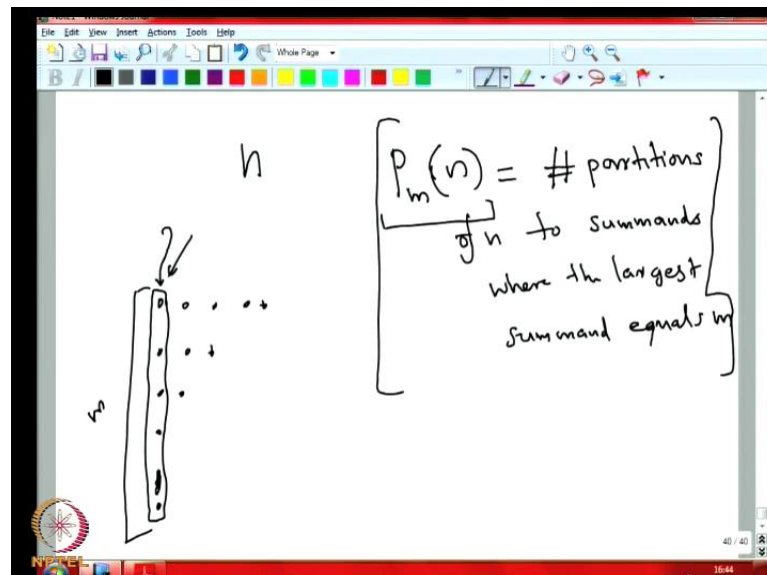 File Edit View Insert Actions Tools Help
Whole Page
B I
n
P_m(n) = # partitions
of n to summands
where th largest
summand equals m
m
40 / 40
NPTEL
16:44